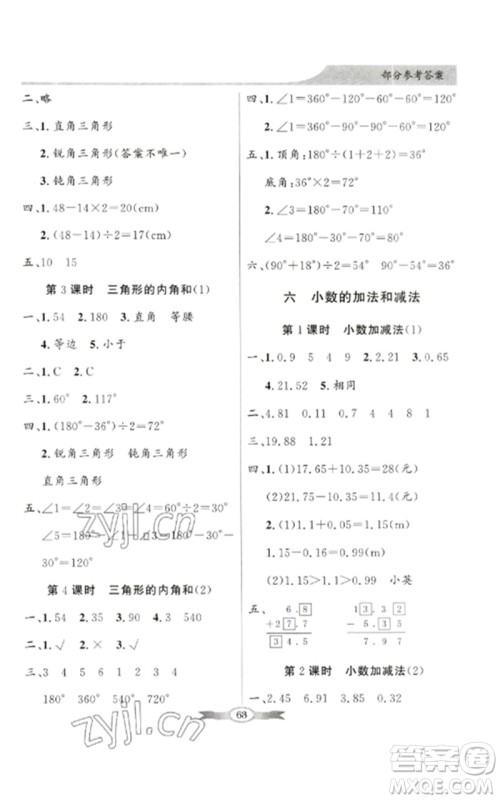 部分参考答案
二、略
三、1. 直角三角形
2. 锐角三角形(答案不唯一)
3. 钝角三角形
四、1. 48-14×2=20(cm)
2. (48-14)÷2=17(cm)
五、10 15
第3课时 三角形的内角和(1)
一、1. 54 2. 180 3. 直角 等腰
4. 等边 5. 小于
二、1. C 2. C
三、1. 60° 2. 120° 3. 60°
四、1. (180°-36°)÷2=72°
2. 锐角三角形 钝角三角形
直角三角形
五、∠1=∠2=∠3=∠4=30°
∠5=180°-∠1-∠2=180°-30°-
30°=120°
第4课时 三角形的内角和(2)
一、1. 54 2. 35 3. 90 4. 3 540
二、1. √ 2. × 3. √
三、3 4 5 6 1 2 3 4
180° 360° 540° 720°
四、1. ∠1=360°-120°-60°-60°=
120°
2. ∠1=360°-90°-90°-60°=120°
五、1. 顶角:180°÷(1+2+2)=36°
底角:36°×2=72°
2. ∠3=(180°-72°)÷2=54°
∠4=180°-30°-70°=80°
六、(90°+18°)÷2=54° 90°-54°=36°
六 小数的加法和减法
第1课时 小数加减法(1)
一、1. 0.9 5 4 9 2. 2.21 3. 0.65
4. 21.52 5. 相同
二、4.81 0.11 0.04 8 4 6.8
三、19.88 1.21
四、1. (1)17.65+10.35=28(元)
(2)21.5-17.65=3.85(元)
2. 1.15+0.38=1.53(m)
1.15-0.16=0.99(m)
(2)1.15>1.1>0.51 小英
五、 6.8
+27.7
34.5
13.32
-5.35
7.97
第2课时 小数加减法(2)
一、2.45 6.91 3.35 0.88
zyjl.cn
zyjl.cn
68
答案圈
MXQE.COM